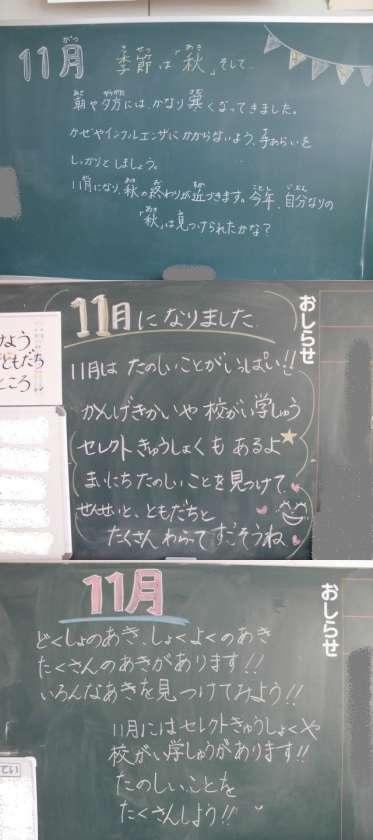 11月 季節は「秋」そして…
がつ きせつ あき
朝や夕方には、かなり寒くなってきました。
あさ ゆうがた さむ
カゼやインフルエンザにかからないよう、手あらいを
て
しっかりとしましょう。
11月になり、秋の終わりが近づきます。今年、自分なりの
がつ あき お ちか ことし じぶん
「秋」は見つけられたかな？
あき み
11月になりました
おしらせ
11月は たのしいことがいっぱい!!
かんげきかいや 校がい学しゅう
セレクトきゅうしょくも あるよ
まいにち たのしいことを見つけて
せんせいと、ともだちと
たくさん わらって すごそうね
よう
ともだち
ところ
11月
おしらせ
どくしょのあき、しょくよくのあき
たくさんのあきがあります!!
いろんなあきを見つけてみよう!!
11月にはセレクトきゅうしょくや
校がい学しゅうがあります!!
たのしいことを
たくさんしよう!!